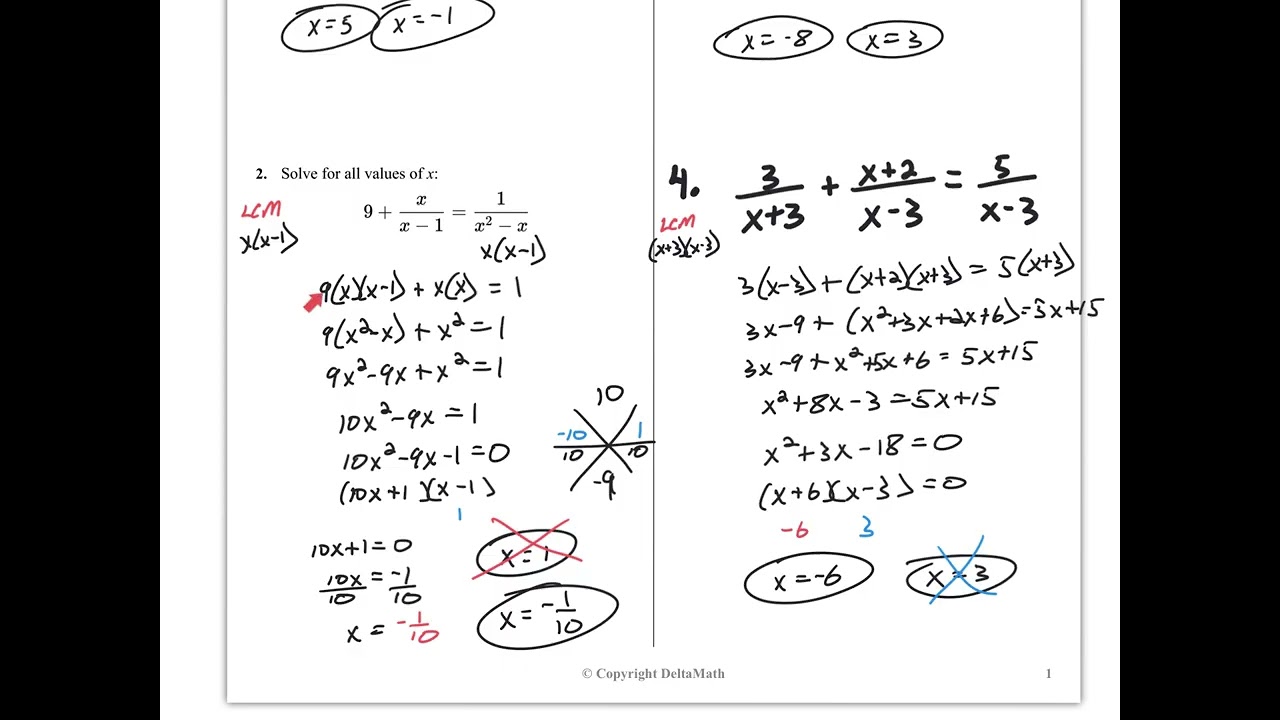 x=5 x=-1
x=-8 x=3
2. Solve for all values of x:
LCM
x(x-1)
9 + x/(x − 1) = 1/(x² − x)
x(x-1)
9(x)(x-1) + x(x) = 1
9(x²-x) + x² = 1
9x²-9x+x²=1
10x²-9x=1
10x²-9x-1=0
(10x+1)(x-1)
1
10
-10/10 1/10
-9
10x+1=0
10x/10 = -1/10
x = -1/10
x=1
x=-1/10
4. 3/(x+3) + (x+2)/(x-3) = 5/(x-3)
LCM
(x+3)(x-3)
3(x-3)+(x+2)(x+3) = 5(x+3)
3x-9+(x²+3x+2x+6)=5x+15
3x-9+x²+5x+6=5x+15
x²+8x-3=5x+15
x²+3x-18=0
(x+6)(x-3)=0
-6 3
x=-6 x=3
© Copyright DeltaMath 1